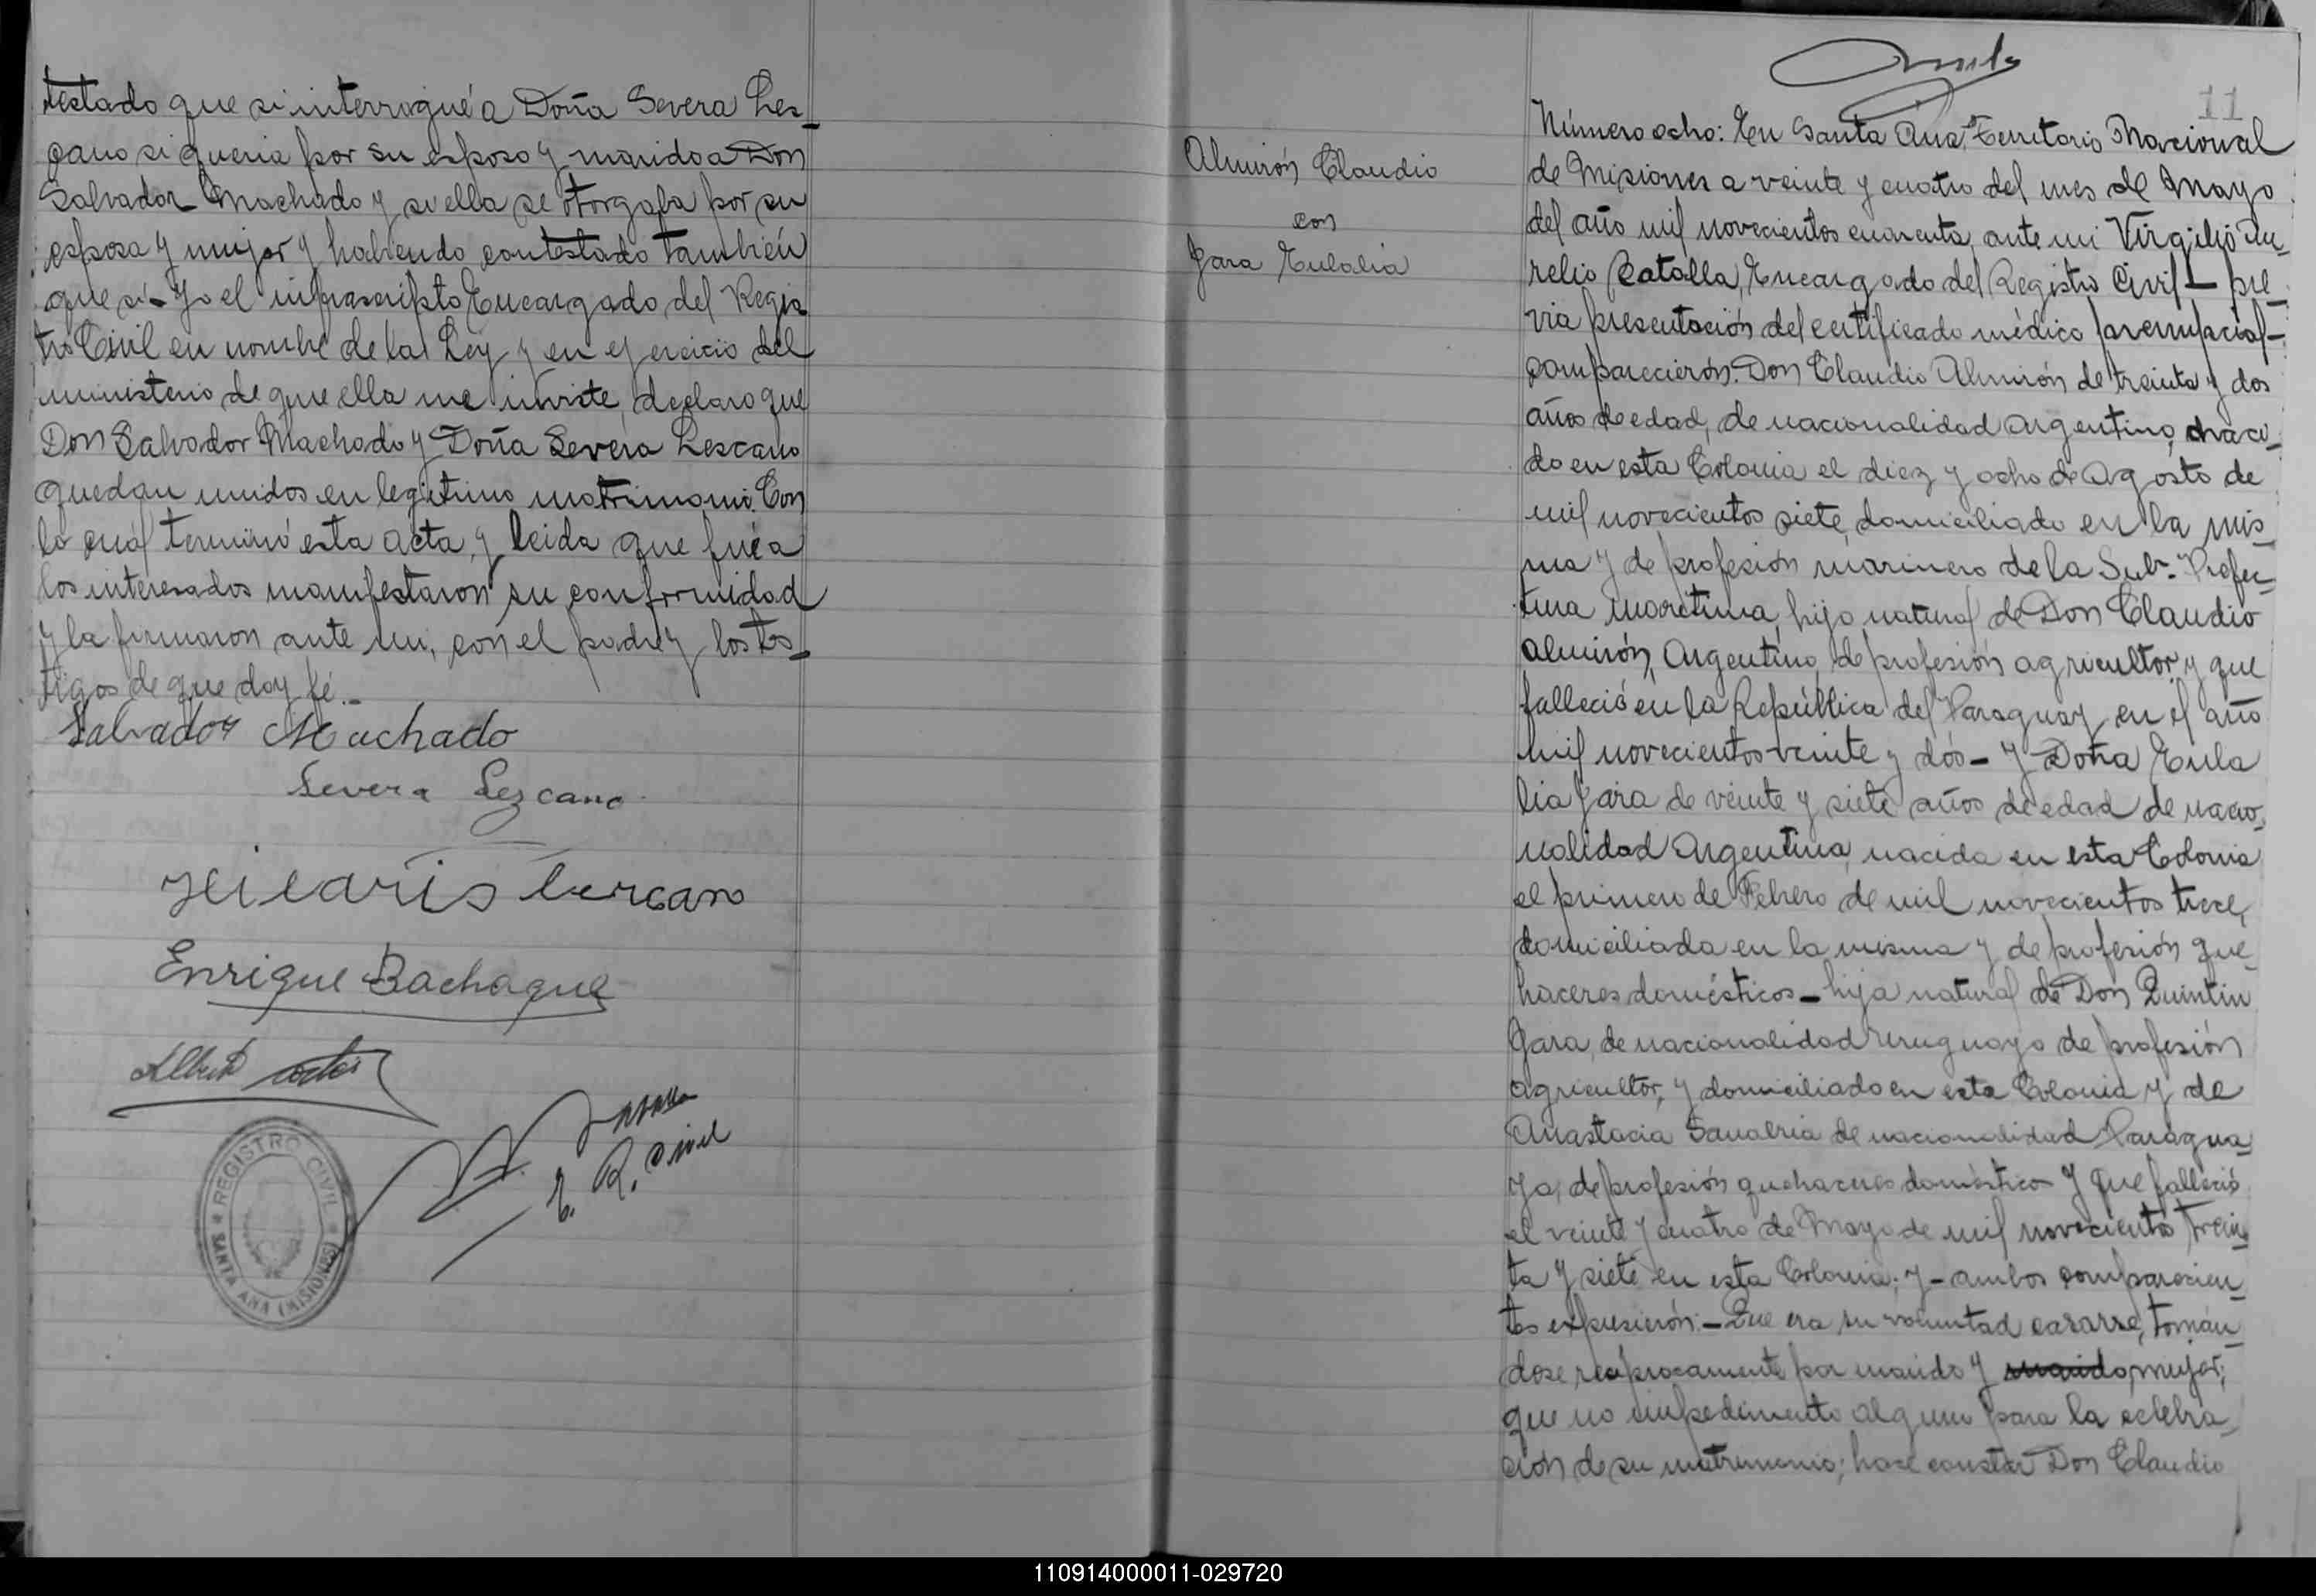 testado que si interrogué a Doña Severa Les-
cano si queria por su esposo y marido a Don
Salvador Machado y si ella se otorgaba por su
esposa y mujer y habiendo contestado también
que si - Yo el infrascripto Encargado del Regis
tro Civil en nombre de la Ley y en ejercicio del
ministerio de que ella me inviste, declaro que
Don Salvador Machado y Doña Severa Lescano
quedan unidos en legitimo matrimonio. Con
lo cuál terminó esta acta, y leida que fué a
los interesados manifestaron su conformidad
y la firmaron ante mi, con el padre y los tes-
tigos de que doy fé.-
Salvador Machado
Severa Lezcano
Hilario Lercano
Enrique Bachaque
E. R. Civil
REGISTRO CIVIL
SANTA ANA (MISIONES)
Almirón Claudio
con
Jara Eulalia
11
Número ocho: En Santa Ana, Territorio Nacional
de Misiones a veinte y cuatro del mes de Mayo
del año mil novecientos cuarenta, ante mi Virgilio Au-
relio Batalla, Encargado del Registro Civil - pre-
via presentación del certificado médico prenupcial-
comparecierón: Don Claudio Almirón de treinta y dos
años de edad, de nacionalidad Argentino, naci-
do en esta Colonia el diez y ocho de Agosto de
mil novecientos siete, domiciliado en la mis-
ma y de profesión marinero de la Sub-Prefec-
tura Maritima, hijo natural de Don Claudio
Almirón, Argentino, de profesión agricultor, y que
falleció en la República del Paraguay en el año
mil novecientos veinte y dós - y Doña Eula
lia Jara de veinte y siete años de edad de nacio-
nalidad Argentina, nacida en esta Colonia
el primero de Febrero de mil novecientos trece,
domiciliada en la misma y de profesión que-
haceres domésticos - hija natural de Don Quintin
Jara, de nacionalidad Uruguayo de profesión
agricultor, y domiciliado en esta Colonia y de
Anastacia Sanabria de nacionalidad Paragua-
ya, de profesión quehaceres domésticos y que falleció
el veinte y cuatro de Mayo de mil novecientos trein-
ta y siete en esta Colonia; y - ambos comparecien-
tes expusierón: - Que era su voluntad casarse, tomán-
dose reciprocamente por marido y marido, mujer;
que no impedimento alguno para la celebra-
ción de su matrimonio; hace constar Don Claudio
110914000011-029720